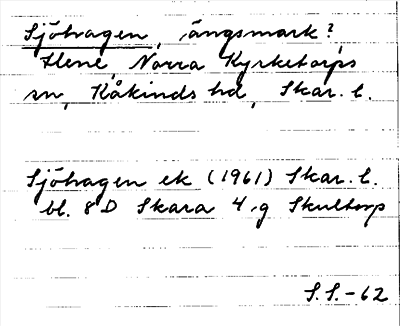 Sjöhagen, ängsmark?
Hene, Norra Kyrketorps
sn, Kåkinds hd, Skar. l.
Sjöhagen ek (1961) Skar. l.
bl. 8D Skara 4 g Skultorp
S.S.-62